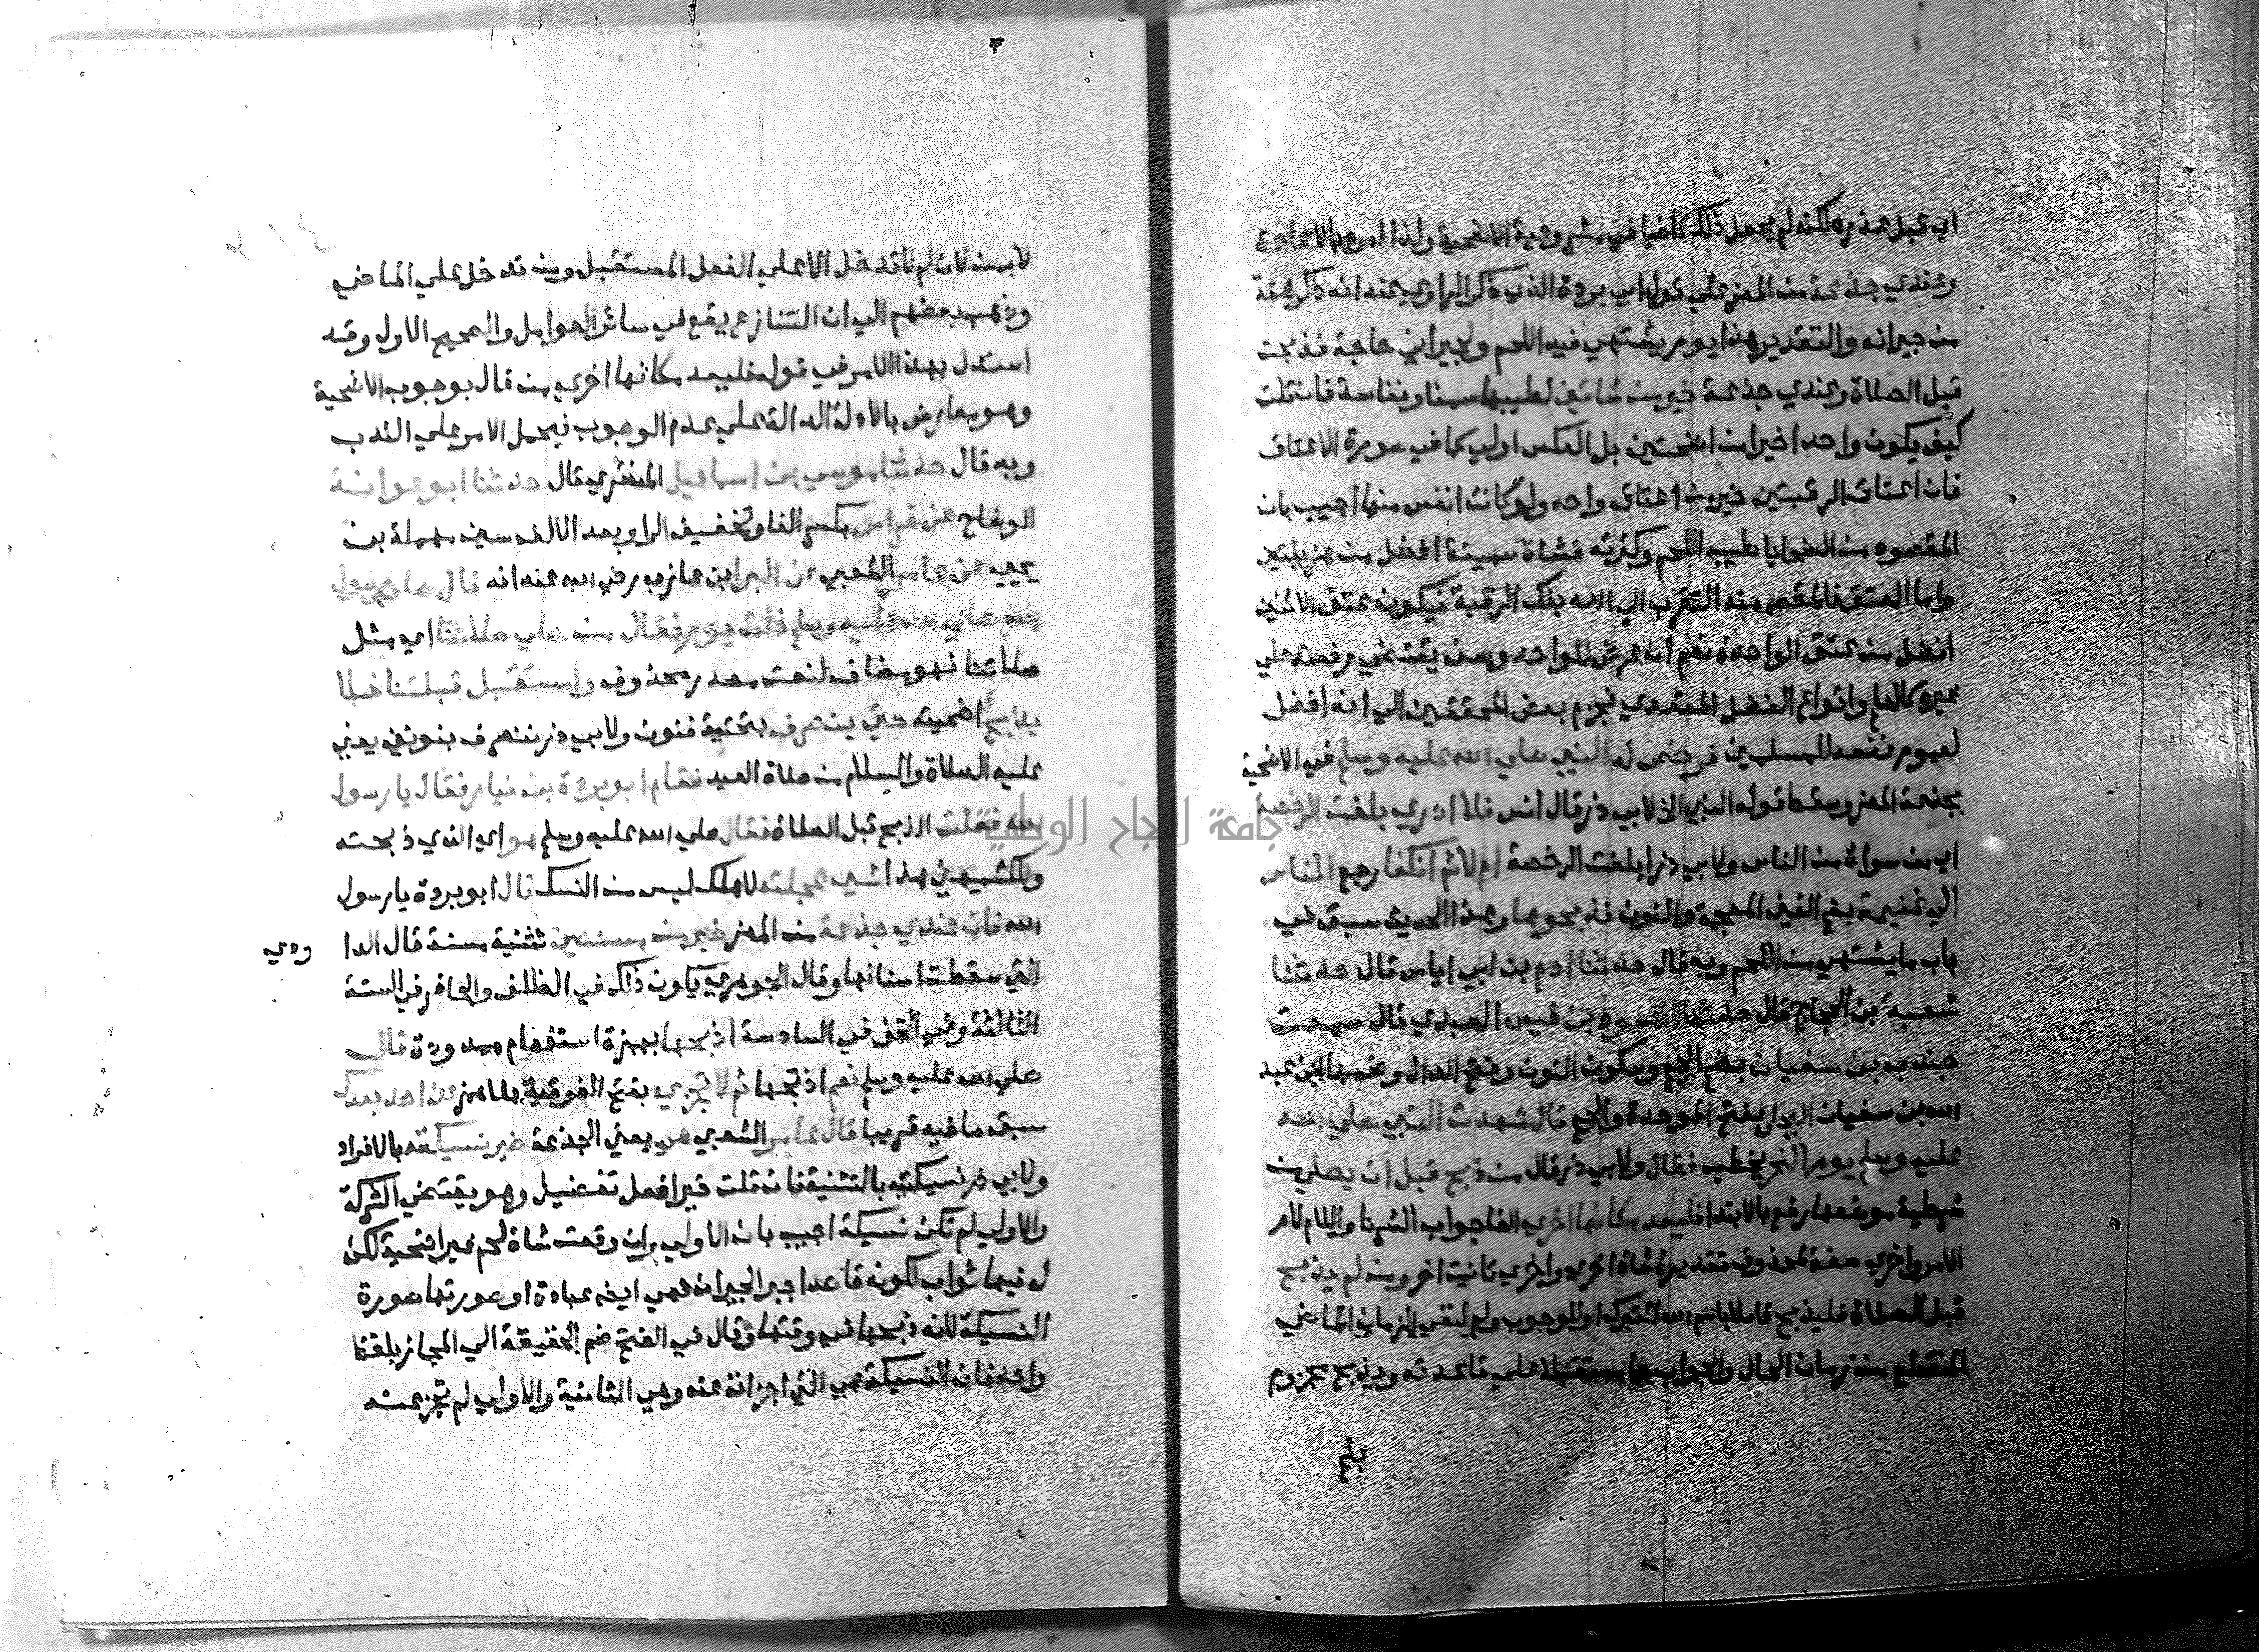 اي قبل عذره لكنه لم يجعل ذلك كافيا في مشروعية الاضحية ولذا امره بالاعادة
وعندي جذعة من المعز علي قول ابي بردة الذي ذكر الراوي عنه انه ذكر هنة
من جيرانه والتقدير هذا يوم يشتهي فيه اللحم ولجيراني حاجة فذبحت
قبل الصلاة وعندي جذعة خير من شاتين لطيبها سمنا ونفاسة فان قلت
كيف يكون واحد اخيرا من اضحيتين بل العكس اولي كما في صورة الاعتاق
فان اعتاق الرقبتين خير من اعتاق واحد ولو كانت انفس منها اجيب بان
المقصود من الضحايا طيب اللحم وكثرته فشاة سمينة افضل من هزيلتين
واما العتق فالمقصد منه التقرب الي الله بفك الرقبة فيكون عتق الاثنين
افضل من عتق الواحدة نعم ان عرض للواحد وصف يقتضي رفعته علي
غيره كالعلم وانواع الفضل المتعدي فجزم بعض المحققين الي انه افضل
لعموم نفعه للمسلمين فرخص له النبي صلي الله عليه وسلم في الاضحية
بجذعة المعز وسقط قوله النبي الخ لابي ذر قال انس فلا ادري بلغت الرخصة
اي من سواه من الناس ولابي ذر ابلغت الرخصة ام لا ثم انكفا رجع الناس
الي غنيمة بضم الغين المعجمة والنون فذبحوها وهذا الحديث سبق في
باب ما يشتهي من اللحم وبه قال حدثنا ادم بن ابي اياس قال حدثنا
شعبة بن الحجاج قال حدثنا الاسود بن قيس العبدي قال سمعت
جندب بن سفيان بضم الجيم وسكون النون وفتح الدال وضمها ابن عبد
الله بن سفيان البجلي بفتح الموحدة والجيم قال شهدت النبي صلي الله
عليه وسلم يوم النحر يخطب فقال ولابي ذر قال من ذبح قبل ان يصلي من
شرطية موضعها رفع بالابتدا فليعد مكانها اخري الفا جواب الشرط واللام لام
الامر واخري صفة لمحذوف تقديره شاة اخري واخري تانيث اخر ومن لم يذبح
قبل الصلاة فليذبح قائلا باسم الله لتبرك او للوجوب ولم لنفي الزمان الماضي
المنقطع من زمان الحال والجواب بها مستقبلا علي قاعدته ويذبح مجزوم
بلم
لا بمن لان لم لا تدخل الا علي الفعل المستقبل ومن تدخل علي الماضي
وذهب بعضهم الي ان التنازع يقع في سائر العوامل والصحيح الاول وقد
استدل بهذا الامر في قوله فليعد مكانها اخري من قال بوجوب الاضحية
وهو معارض بالادلة الدالة علي عدم الوجوب فيحمل الامر علي الندب
وبه قال حدثنا موسي بن اسماعيل المنقري قال حدثنا ابو عوانة
الوضاح عن فراس بكسر الفا وتخفيف الرا وبعد الالف سين مهملة بن
يحيي عن عامر الشعبي عن البرا بن عازب رضي الله عنه انه قال صلي رسول
الله صلي الله عليه وسلم ذات يوم فقال من صلي صلاتنا اي مثل
صلاتنا فهو مضاف لنعت مصدر محذوف واستقبل قبلتنا فلا
يذبح اضحيته حتي ينصرف بتحتية فنون ولابي ذر ننصرف بنونين يعني
عليه الصلاة والسلام من صلاة العيد فقام ابو بردة بن نيار فقال يا رسول
الله فعلت الذبح قبل الصلاة فقال صلي الله عليه وسلم هو اي الذي ذبحته
وللكشميهني هذا شيي عجلته لاهلك ليس من النسك قال ابو بردة يا رسول
الله فان عندي جذعة من المعز خير من مسنتين تثنية مسنة قال الدا ودي
التي سقطت اسنانها وقال الجوهري يكون ذلك في الظلف والحافر في السنة
الثالثة وفي الخف في السادسة اذبحها بهمزة استفهام ممدودة قال
صلي الله عليه وسلم نعم اذبحها ثم لا تجزي بفتح الفوقية بلا همز عن احد بعدك
سبق ما فيه قريبا قال عامر الشعبي هي يعني الجذعة خير نسيكته بالافراد
ولابي ذر نسيكتيه بالتثنية فان قلت خير افعل تفضيل وهو يقتضي الشركة
والاولي لم تكن نسيكة اجيب بان الاولي وان وقعت شاة لحم غير اضحية لكن
له فيها ثواب لكونه قاصدا جبر الجيران فهي ايضا عبادة او صورتها صورة
النسيكة لانه ذبحها في وقتها وقال في الفتح ضم الحقيقة الي المجاز بلفظ
واحد فان النسيكة هي التي اجزات عنه وهي الثانية والاولي لم تجز عنه
جامعة النجاح الوطنية